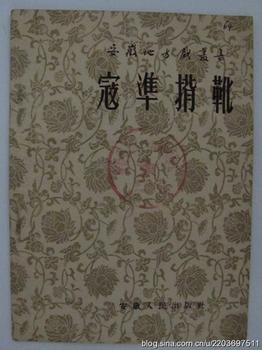 安徽地方戲叢書
寇準揹靴
安徽人民出版社
blog.sina.com.cn/u/2203697511